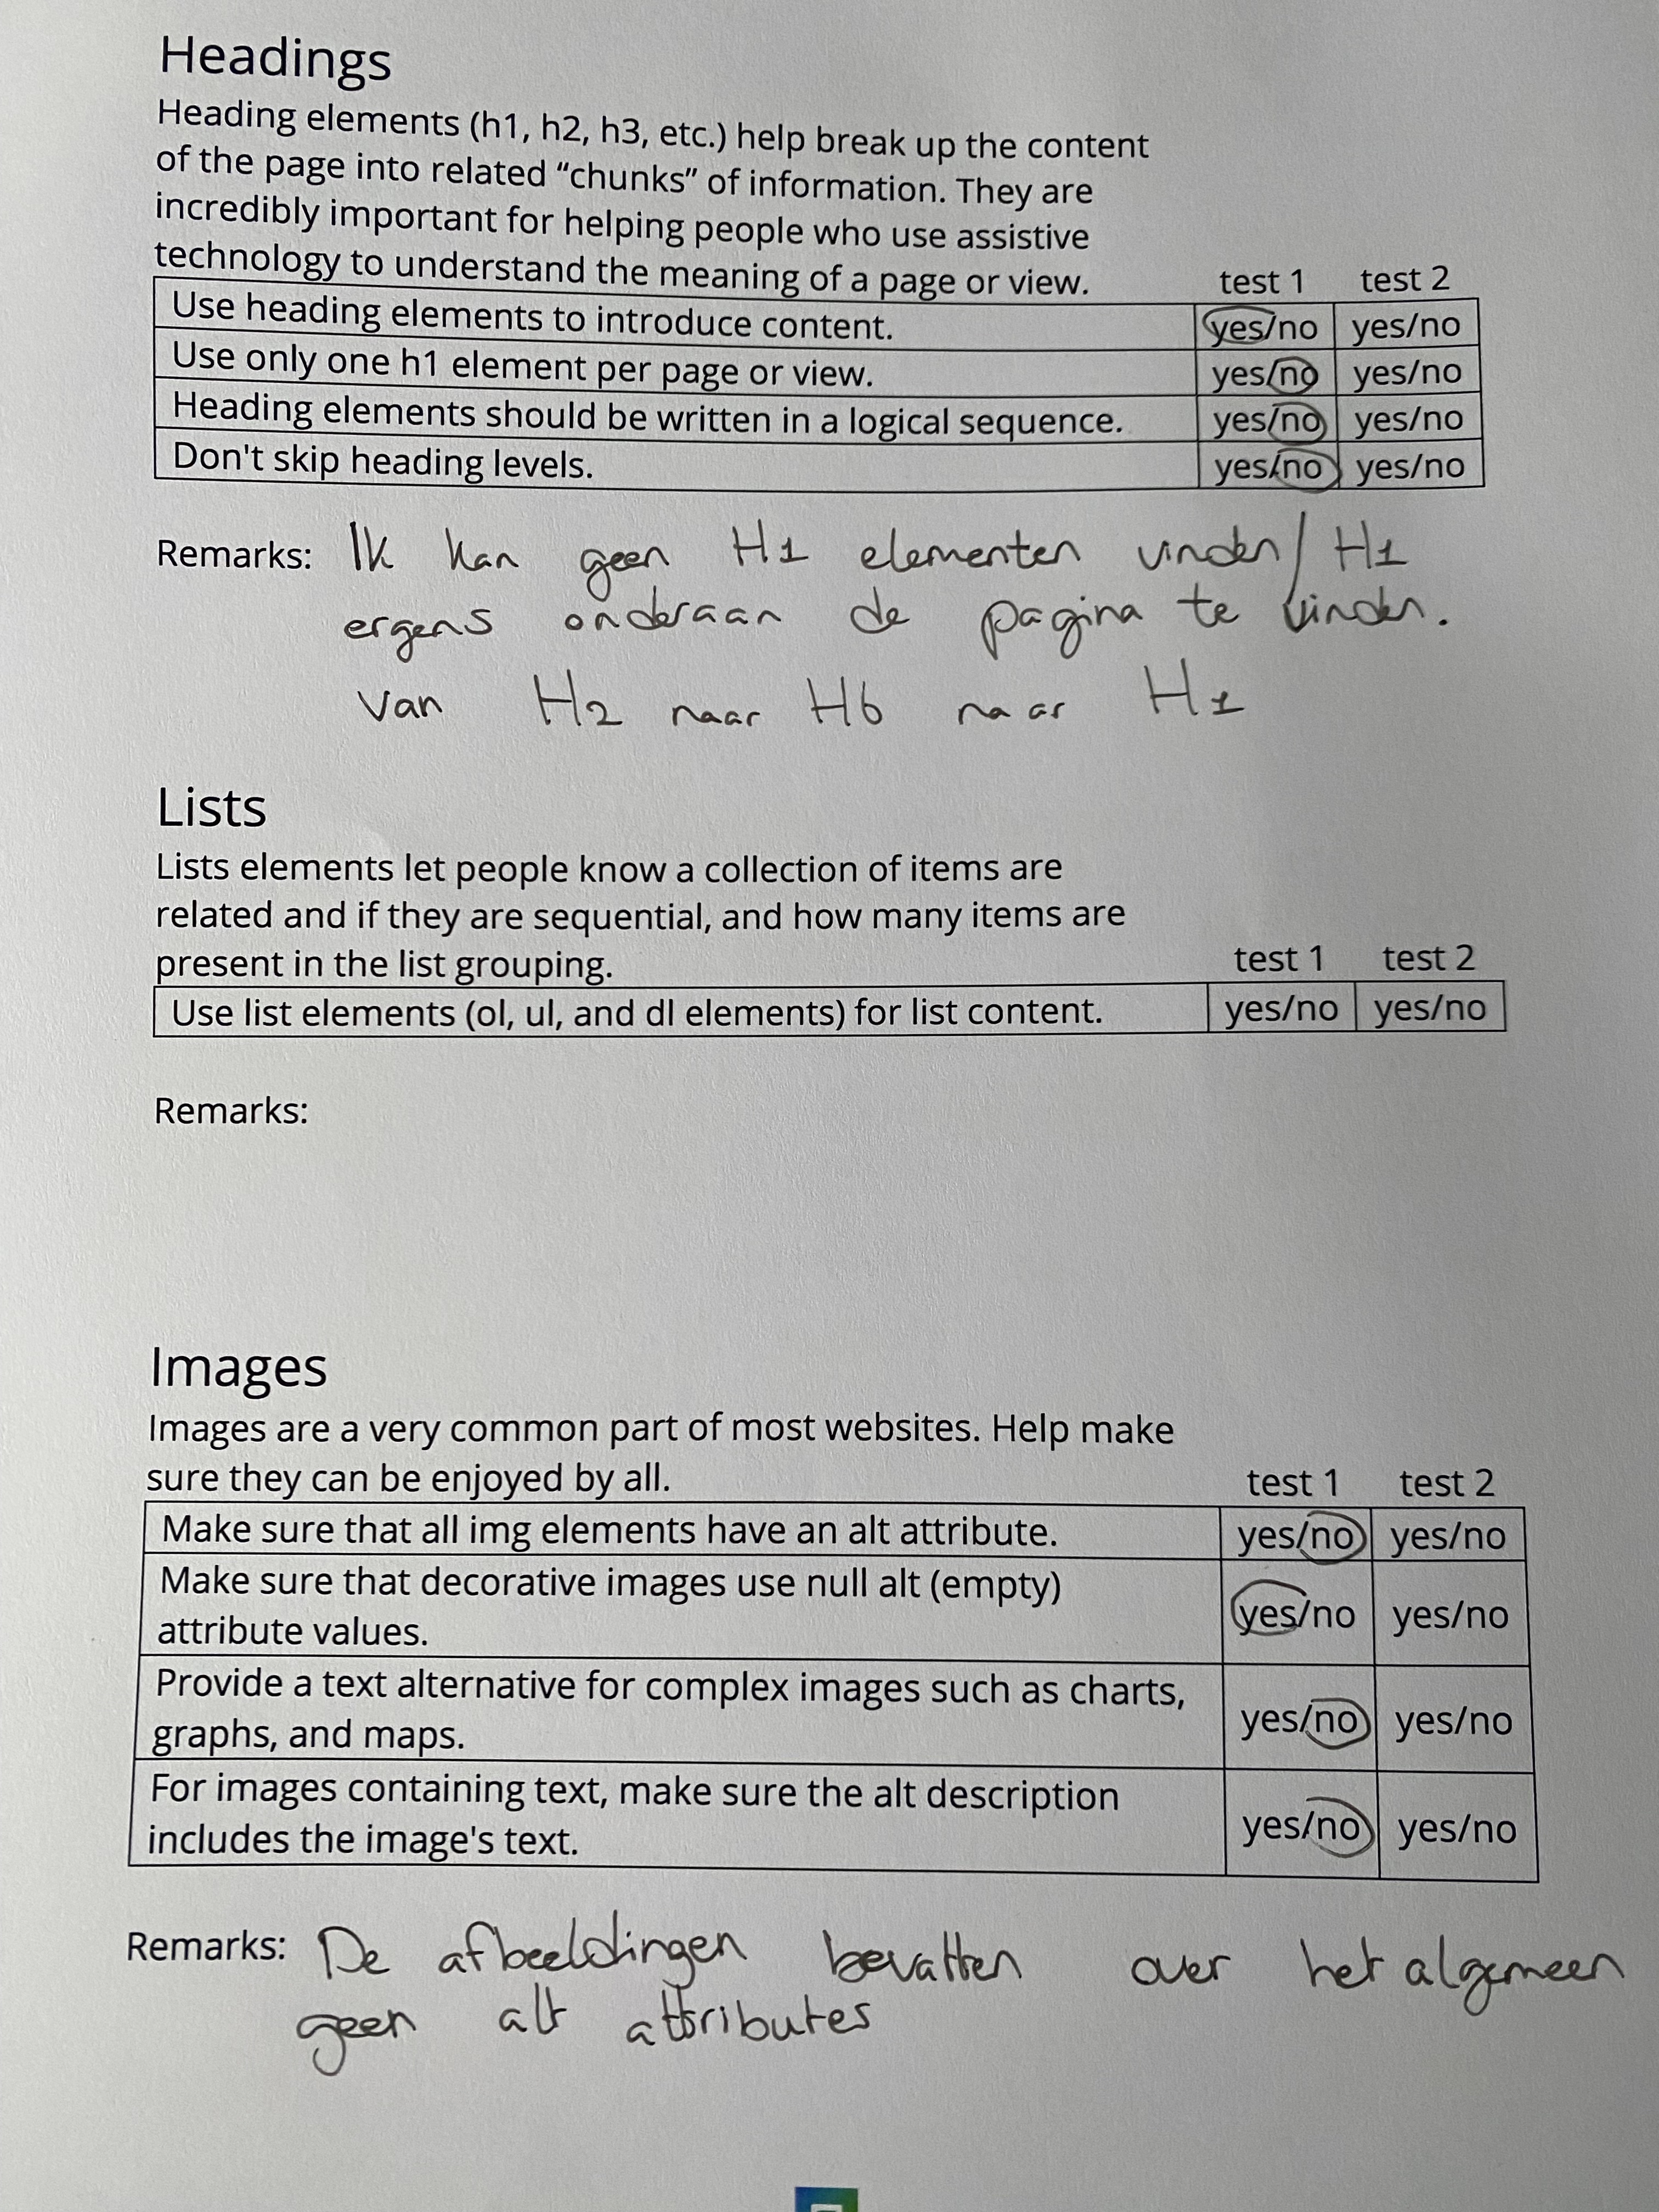 Headings
Heading elements (h1, h2, h3, etc.) help break up the content
of the page into related “chunks” of information. They are
incredibly important for helping people who use assistive
technology to understand the meaning of a page or view.
test 1 test 2
Use heading elements to introduce content. yes/no yes/no
Use only one h1 element per page or view. yes/no yes/no
Heading elements should be written in a logical sequence. yes/no yes/no
Don't skip heading levels. yes/no yes/no
Remarks: Ik kan geen H1 elementen vinden/ H1
ergens onderaan de pagina te vinden.
van H2 naar H6 naar H1
Lists
Lists elements let people know a collection of items are
related and if they are sequential, and how many items are
present in the list grouping.
test 1 test 2
Use list elements (ol, ul, and dl elements) for list content. yes/no yes/no
Remarks:
Images
Images are a very common part of most websites. Help make
sure they can be enjoyed by all.
test 1 test 2
Make sure that all img elements have an alt attribute. yes/no yes/no
Make sure that decorative images use null alt (empty)
attribute values. yes/no yes/no
Provide a text alternative for complex images such as charts,
graphs, and maps. yes/no yes/no
For images containing text, make sure the alt description
includes the image's text. yes/no yes/no
Remarks: De afbeeldingen bevatten over het algemeen
geen alt attributes